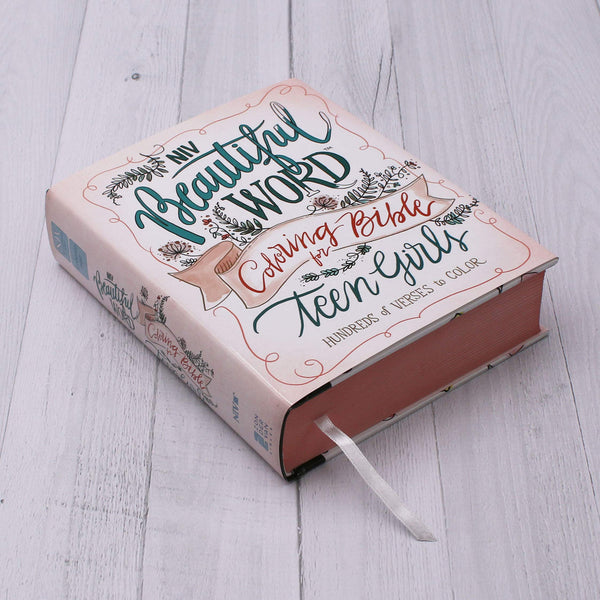 NIV
Beautiful
WORD™
Coloring Bible
for
Teen Girls
HUNDREDS of VERSES to COLOR
NIV
Beautiful
WORD
Coloring Bible
for
Teen Girls
NIV
ZON
DER
VAN